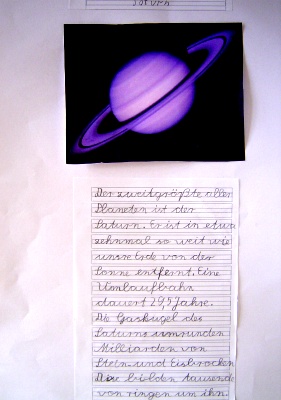 Saturn
Der zweitgrößte aller
Planeten ist der
Saturn. Er ist in etwa
zehnmal so weit wie
unsre Erde von der
Sonne entfernt. Eine
Umlaufbahn
dauert 29,5 Jahre.
Die Gaskugel des
Saturns umrunden
Milliarden von
Stein- und Eisbrocken
Die bilden tausende
von ringen um ihn.